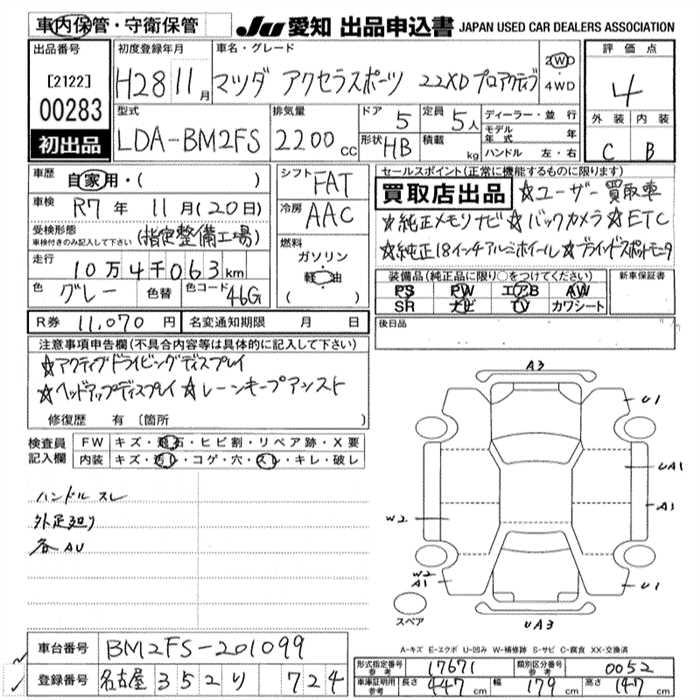 車内保管・守衛保管 JU 愛知 出品申込書 JAPAN USED CAR DEALERS ASSOCIATION
出品番号 [2122] 00283 初出品
初度登録年月 H28 11月
車名・グレード マツダ アクセラスポーツ 22XD プロアクティブ 2WD・4WD
評価点 4
外装 C 内装 B
型式 LDA-BM2FS
排気量 2200cc
ドア 5 定員 5人
形状 HB 積載 kg
ディーラー・並行
モデル年式 年
ハンドル 左・右
車歴 自家用・( )
車検 R7年 11月(20日)
受検形態 車検付きのみ記入して下さい (指定整備工場)
走行 10万4千063km
色 グレー 色替 色コード 46G
シフト FAT
冷房 AAC
燃料 ガソリン 軽油 ( )
R券 11,070円 名変通知期限 月 日
セールスポイント(正常に機能するものに限ります)
買取店出品 ☆ユーザー買取車
☆純正メモリナビ☆バックカメラ☆ETC
☆純正18インチアルミホイール☆ブラインドスポットモニタ
装備品(純正品に限り○をつけてください) 新車保証書
PS PW エアB AW
SR ナビ TV カワシート
後日品
注意事項申告欄(不具合内容等は具体的に記入して下さい)
☆アクティブドライビングディスプレイ
☆ヘッドアップディスプレイ☆レーンキープアシスト
修復歴 有〔箇所 〕
検査員記入欄
FW キズ・飛石・ヒビ割・リペア跡・X要
内装 キズ・汚れ・コゲ・穴・スレ・キレ・破レ
ハンドル スレ
外足廻り
各AU
A3
U1
UA1
A1
W2
W2
A1
U1
UA3
スペア
A-キズ E-エクボ U-凹み W-補修跡 S-サビ C-腐食 XX-交換済
車台番号 BM2FS-201099
登録番号 名古屋 352 り 724
型式指定番号参考 17671 類別区分番号参考 0052
車庫証明用参考 長さ 447cm 幅 179cm 高さ 147cm